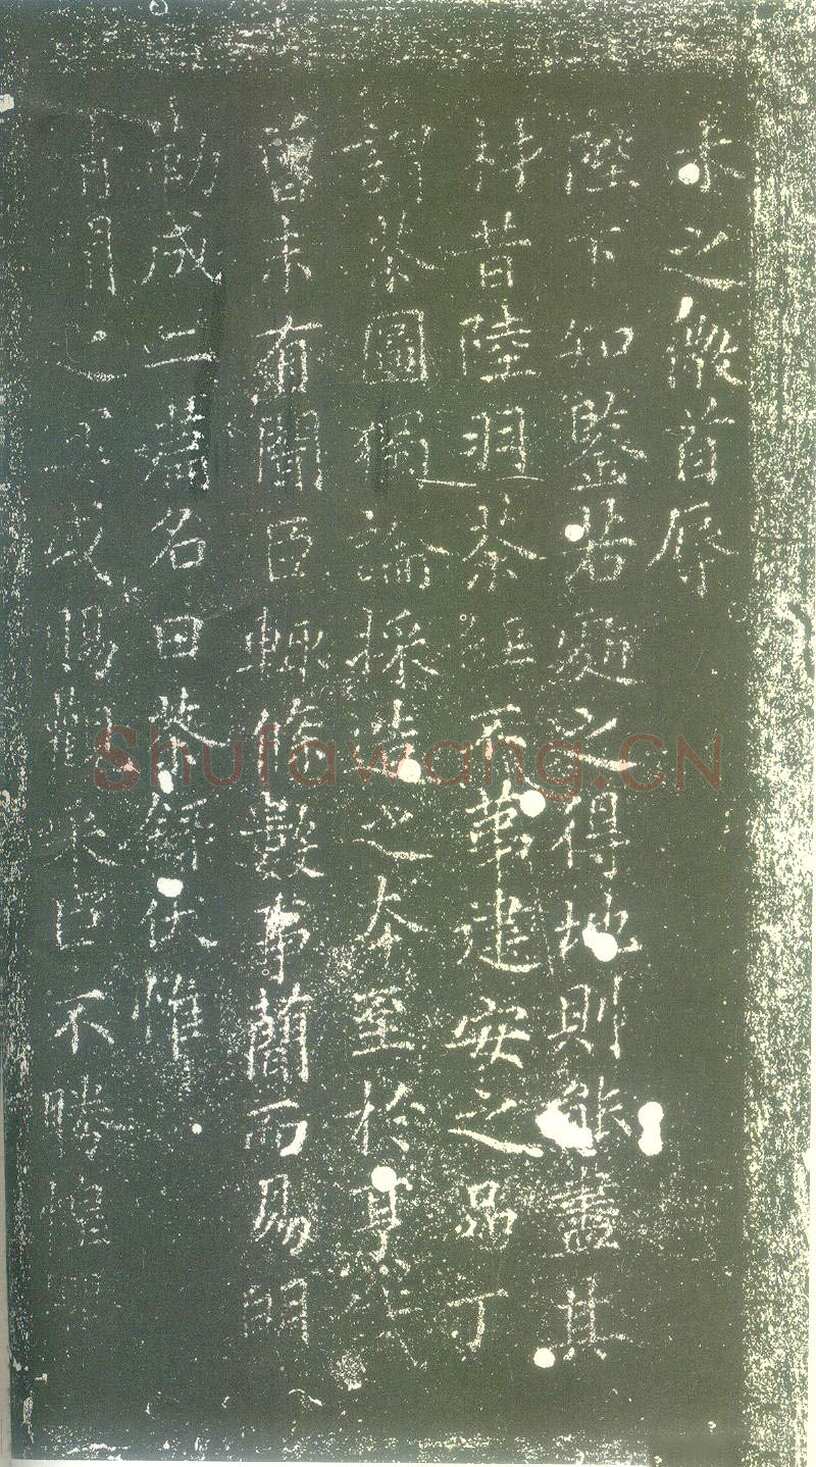 木之微首辱
陛下知鑒若處之得地則能盡其
材昔陸羽茶經不第建安之品丁
謂茶圖獨論採造之本至於烹試
曾未有聞臣輒條數事簡而易明
勒成二篇名曰茶錄伏惟
清閒之宴或賜觀采臣不勝惶
Shufawang.CN